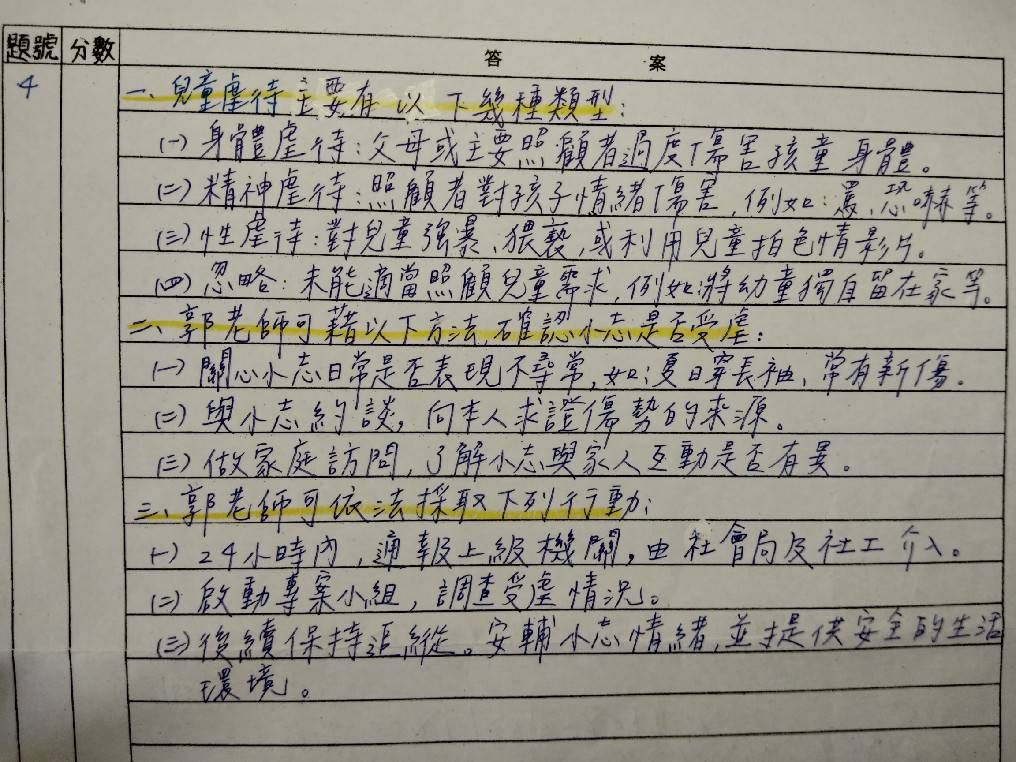 題號 分數 答 案
4 一、兒童虐待主要有以下幾種類型：
(一) 身體虐待：父母或主要照顧者過度傷害孩童身體。
(二) 精神虐待：照顧者對孩子情緒傷害，例如：罵、恐嚇等。
(三) 性虐待：對兒童強暴、猥褻，或利用兒童拍色情影片。
(四) 忽略：未能適當照顧兒童需求，例如：將幼童獨自留在家等。
二、郭老師可藉以下方法，確認小志是否受虐：
(一) 關心小志日常是否表現不尋常，如：夏日穿長袖、常有新傷。
(二) 與小志約談，向本人求證傷勢的來源。
(三) 做家庭訪問，了解小志與家人互動是否有異。
三、郭老師可依法採取下列行動：
(一) 24小時內，通報上級機關，由社會局及社工介入。
(二) 啟動專案小組，調查受虐情況。
(三) 後續保持追縱。安輔小志情緒，並提供安全的生活
環境。